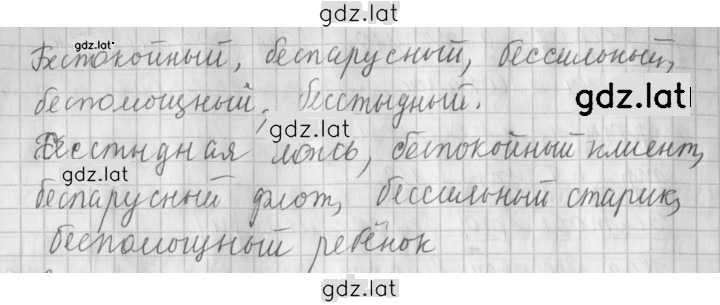 gdz.lat
Беспокойный, беспарусный, бессильный,
gdz.lat
беспомощный, бесстыдный.
gdz.lat
gdz.lat
Бесстыдная ложь, беспокойный клиент,
gdz.lat
беспарусный флот, бессильный старик,
беспомощный ребёнок
gdz.lat